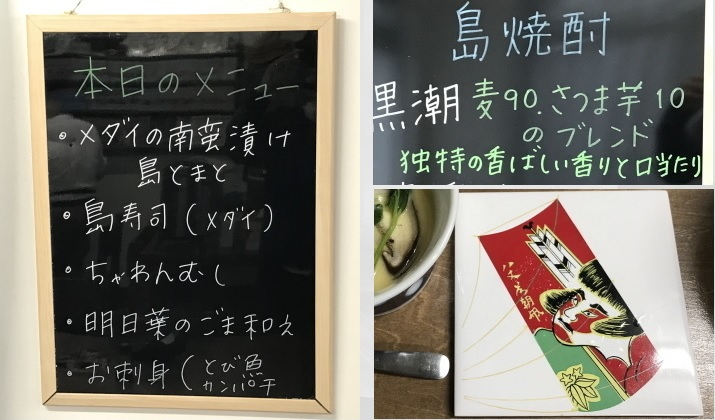 本日のメニュー
・メダイの南蛮漬け
島とまと
・島寿司(メダイ)
・ちゃわんむし
・明日葉のごま和え
・お刺身(とび魚
カンパチ
島焼酎
黒潮 麦90.さつま芋10
のブレンド
独特の香ばしい香りと口当たり